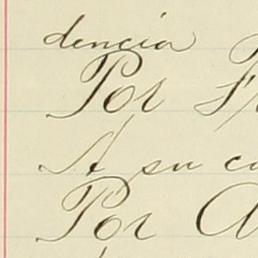 dencia
Por
A su
Por A